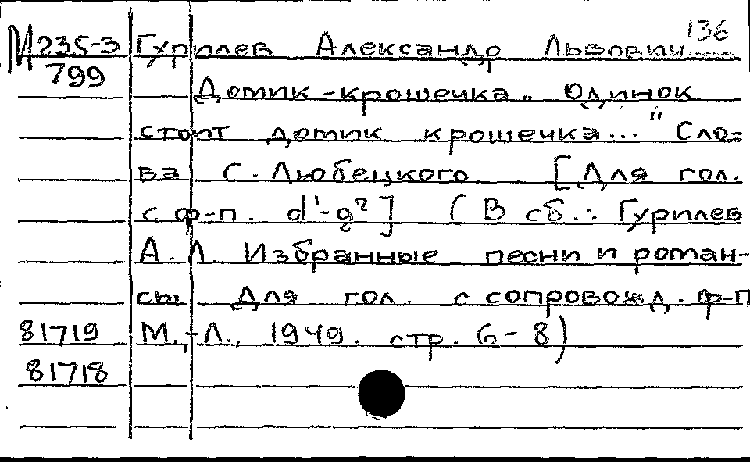 136
М235-3 Гурилев Александр Львович
799
Домик-крошечка. „Одинок
стоит домик крошечка..." Сло=
ва С. Любецкого [Для гол.
с ф-п. d¹-g²] (В сб.: Гурилев
А. Л. Избранные песни и роман-
сы для гол. с сопровожд. ф-п
81719 М.,-Л., 1949. стр. 6-8)
81718